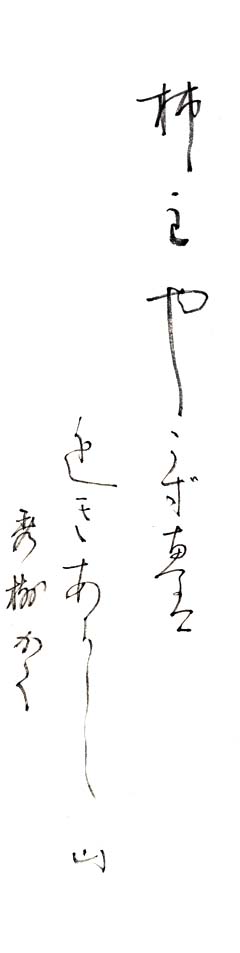 柿主やこずゑは
近きあらし山
秀樹かく